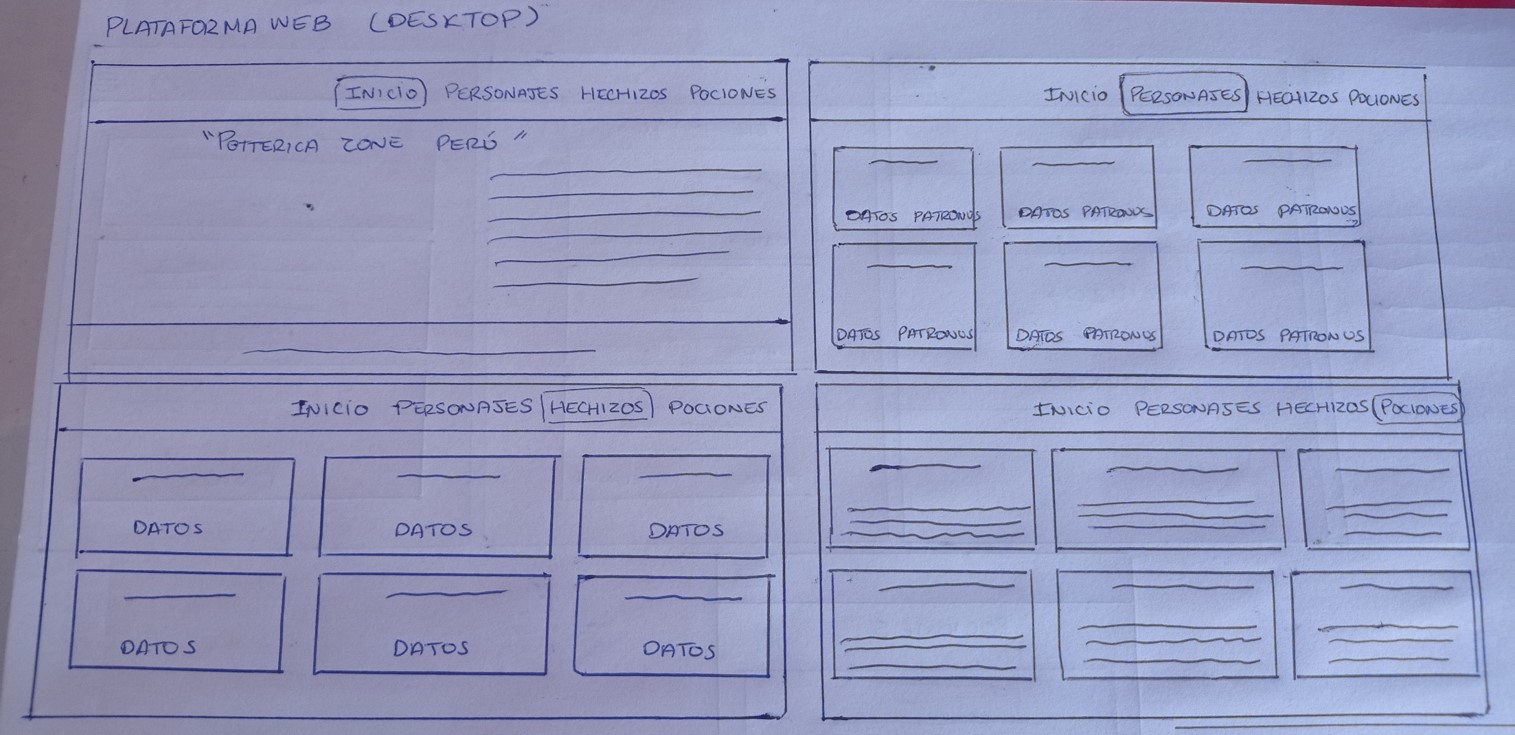 PLATAFORMA WEB (DESKTOP)
INICIO PERSONAJES HECHIZOS POCIONES
"POTTERICA ZONE PERÚ"
INICIO PERSONAJES HECHIZOS POCIONES
DATOS PATRONUS
DATOS PATRONUS
DATOS PATRONUS
DATOS PATRONUS
DATOS PATRONUS
DATOS PATRONUS
INICIO PERSONAJES HECHIZOS POCIONES
DATOS
DATOS
DATOS
DATOS
DATOS
DATOS
INICIO PERSONAJES HECHIZOS POCIONES